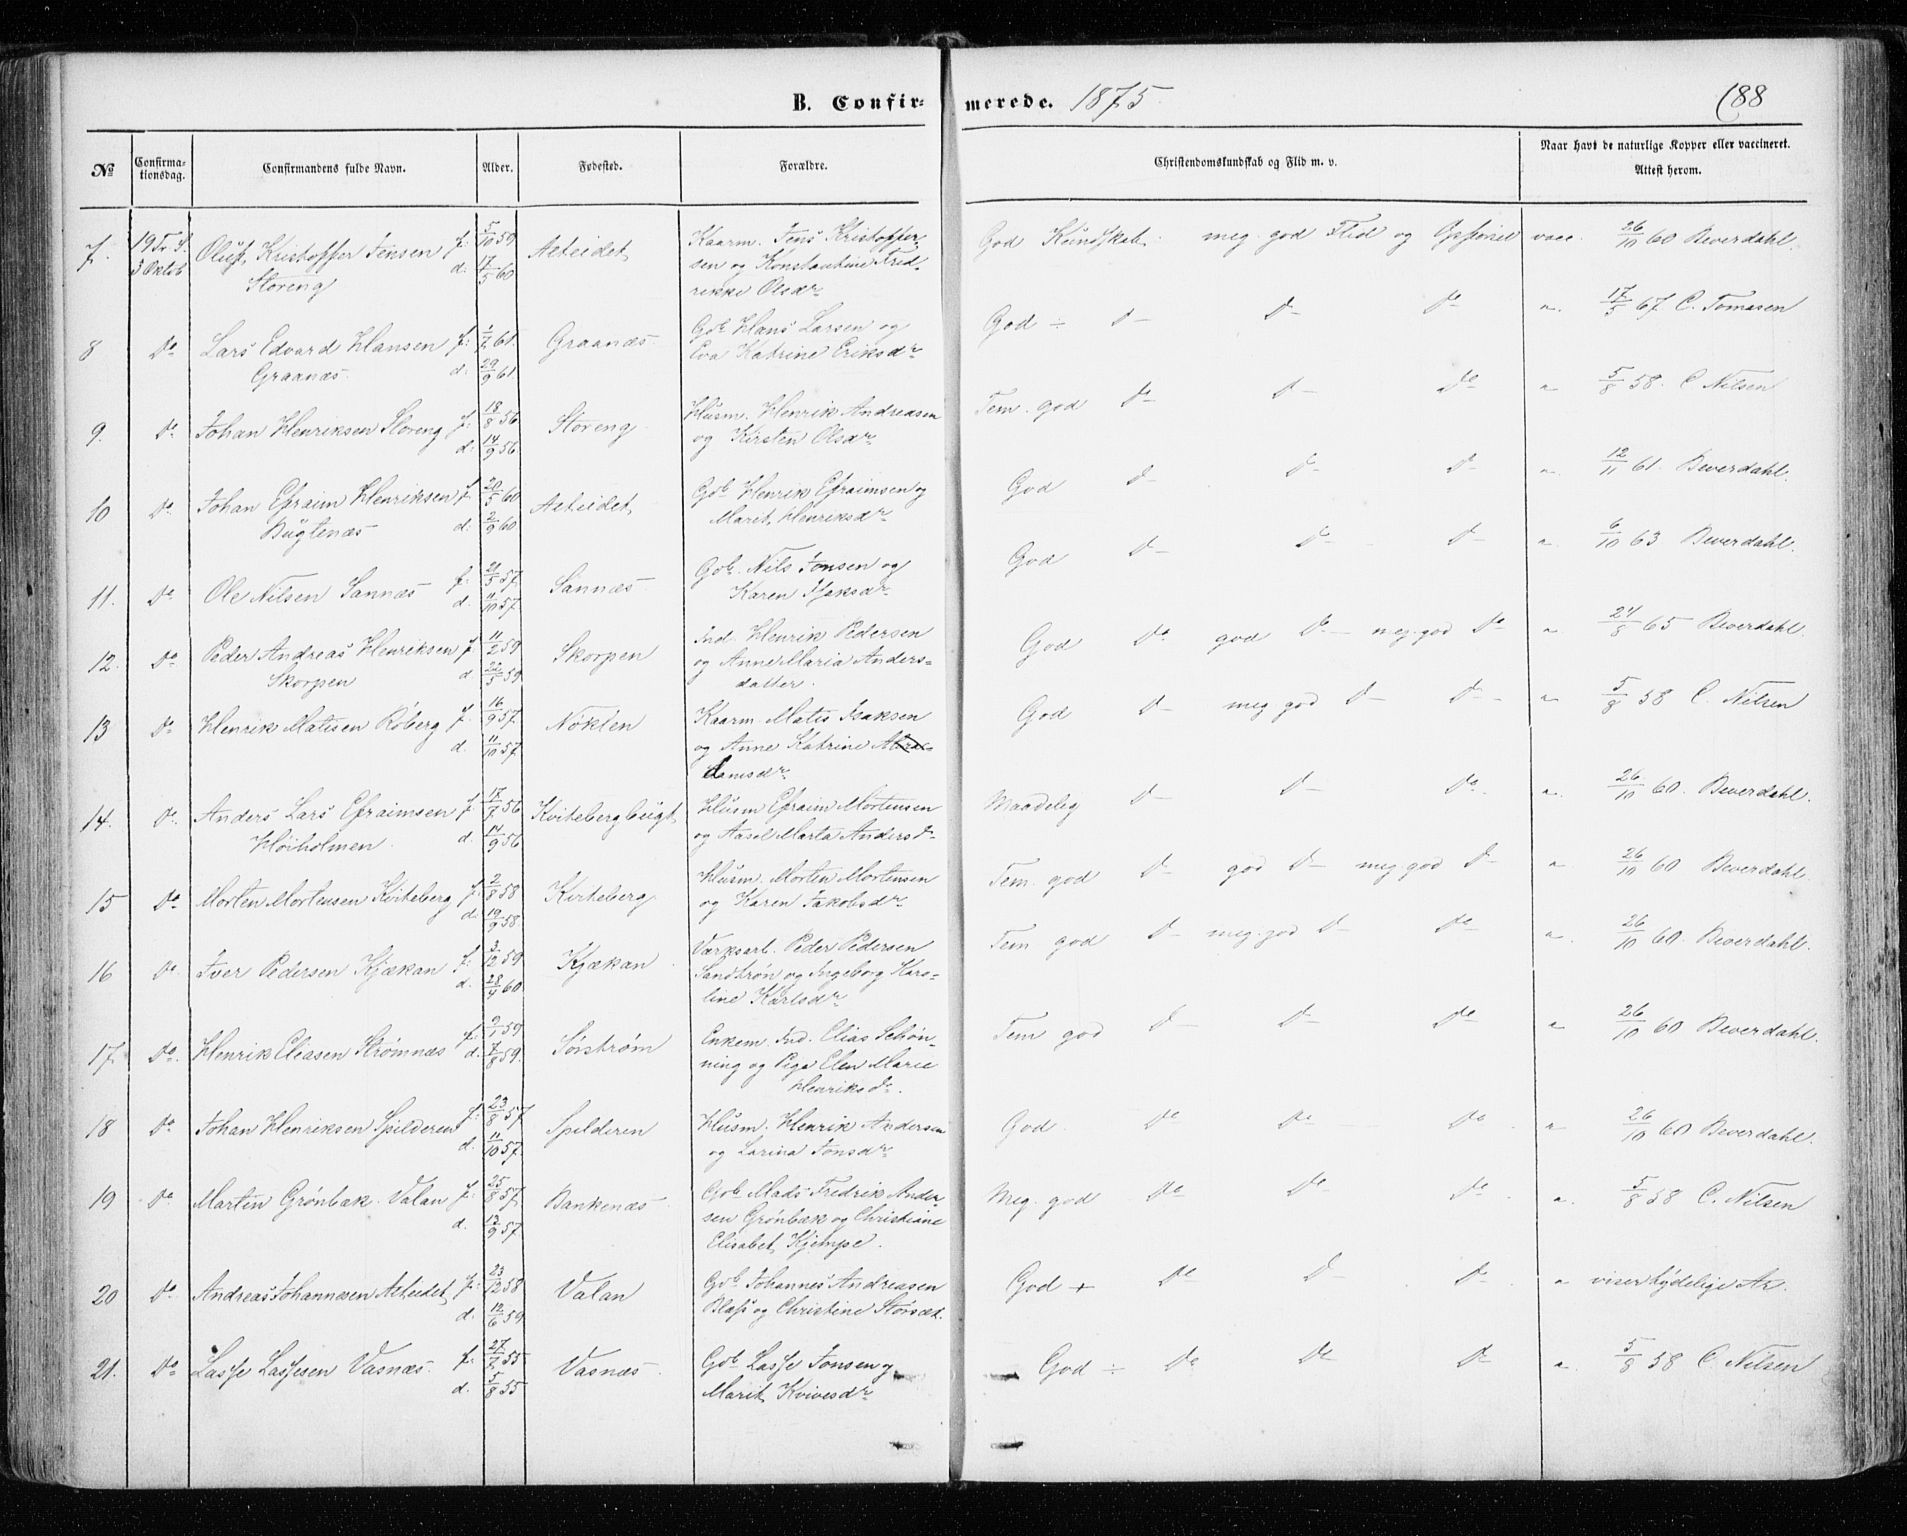 B. Confir- merede. 1875. 188
No Confirma-tionsdag. Confirmandens fulde Navn. Alder. Fødested. Forældre. Christendomskundskab og Flid m. v. Naar havt de naturlige Kopper eller vaccineret. Attest herom.
7. 19 Tr. S. 3 Oktob Oluf Kristoffer Jensen f: 5/10 59 Alteidet Kaarm. Jens Kristoffer- God Kundskab. meg. god Flid og Opførsel vacc. 26/10 60 Beverdahl.
Storeng d: 17/5 60 sen og Konstantine Fred-
rikke Olsdr
8 Do Lars Edvard Hansen f: 1/7 61. Graanæs Gbr Hans Larsen og God ÷ D- D- Do " 17/5 67 C. Tomasen
Graanæs. d: 29/9 61. Eva Katrine Eriksdr
9. Do Johan Henriksen Storeng f: 18/8 56 Storeng Husm. Henrik Andreasen Tem. god Do D- Do " 5/8 58. C. Nilsen
d: 14/9 56. og Kirsten Olsdr
10 Do. Johan Efraim Henriksen f. 20/5 60 Alteidet Gbr Henrik Efraimsen og God D- D- D- " 12/11 61. Beverdahl.
Bugtenæs d: 2/9 60 Marit Henriksdr
11. Do Ole Nilsen Sannæs f: 21/5 57. Sannæs Gbr. Nils Jonsen og God D- D- D- " 6/10 63 Beverdahl.
d. 11/10 57. Karen Isaksdr
12. Do Peder Andreas Henriksen f 11/2 59 Skorpen Ind. Henrik Pedersen God Do god Do- meg. god Do " 24/8 65 Beverdahl.
Skorpen d 22/5 59 og Anne Maria Anders=
datter.
13 Do Henrik Matisen Røberg f. 16/9 57. Nøklen Kaarm Matis Isaksen God D- meg god D- D- " 5/8 58 C. Nilsen
d. 11/10 57. og Anne Katrine
damsdr
14. Do. Anders Lars Efraimsen f. 17/7 56 Kvitebergbugt Husm Efraim Mortensen Maadelig D- D- Do " 26/10 60. Beverdahl.
Høiholmen. d. 14/9 56 og Aasel Marta Andersd-
15 Do Morten Mortensen Kviteberg f. 2/8 58 Kviteberg Husm. Morten Mortensen Tem. god D- god D- meg god D- " 26/10 60 Beverdahl.
d: 19/9 58. og Karen Jakobsdr
16 Do. Iver Pedersen Kjækan f: 3/12 59 Kjækan. Værksarb. Peder Pedersen Tem god D- meg. god D- Do " 26/10 60. Beverdahl.
d. 28/4 60. Sandtrøn og Ingeborg Karo-
line Karlsdr
17. Do. Henrik Eliasen Strømnæs f. 9/1 59 Sørstrøm Enkem. Ind. Elias Schøn- Tem god D- D- Do " 26/10 60 Beverdahl.
d. 7/8 59. ning og Pige Elen Marie
Henriksd-.
18 Do Johan Henriksen Spilderen f. 23/8 57. Spilderen Husm. Henrik Andersen God. Do Do Do " 26/10 60 Beverdahl.
d. 11/10 57. og Larina Jonsdr
19 Do Martin Grønbæk. Valan f. 25/8 57. Bankenæs Gbr. Mads Fredrik Ander- Meg. god Do Do Do " 5/8 58 C. Nilsen
d. 13/9 57. sen Grønbæk og Christiane
Elisabet Kjempe.
20 Do Andreas Johannesen Alteidet f. 23/12 58 Valan Gbr Johannes Andreasen God + Do D- Do " viser tydelige Ar.
d. 12/6 59 Blæss og Christine Storsæt.
21. Do Lasse Lassesen Vasnæs. f: 27/7 55 Vasnæs. Gbr Lasse Jonsen og God ÷ Do Do Do " 5/8 58 C. Nilsen
d. 5/8 55 Marit Kvivesdr